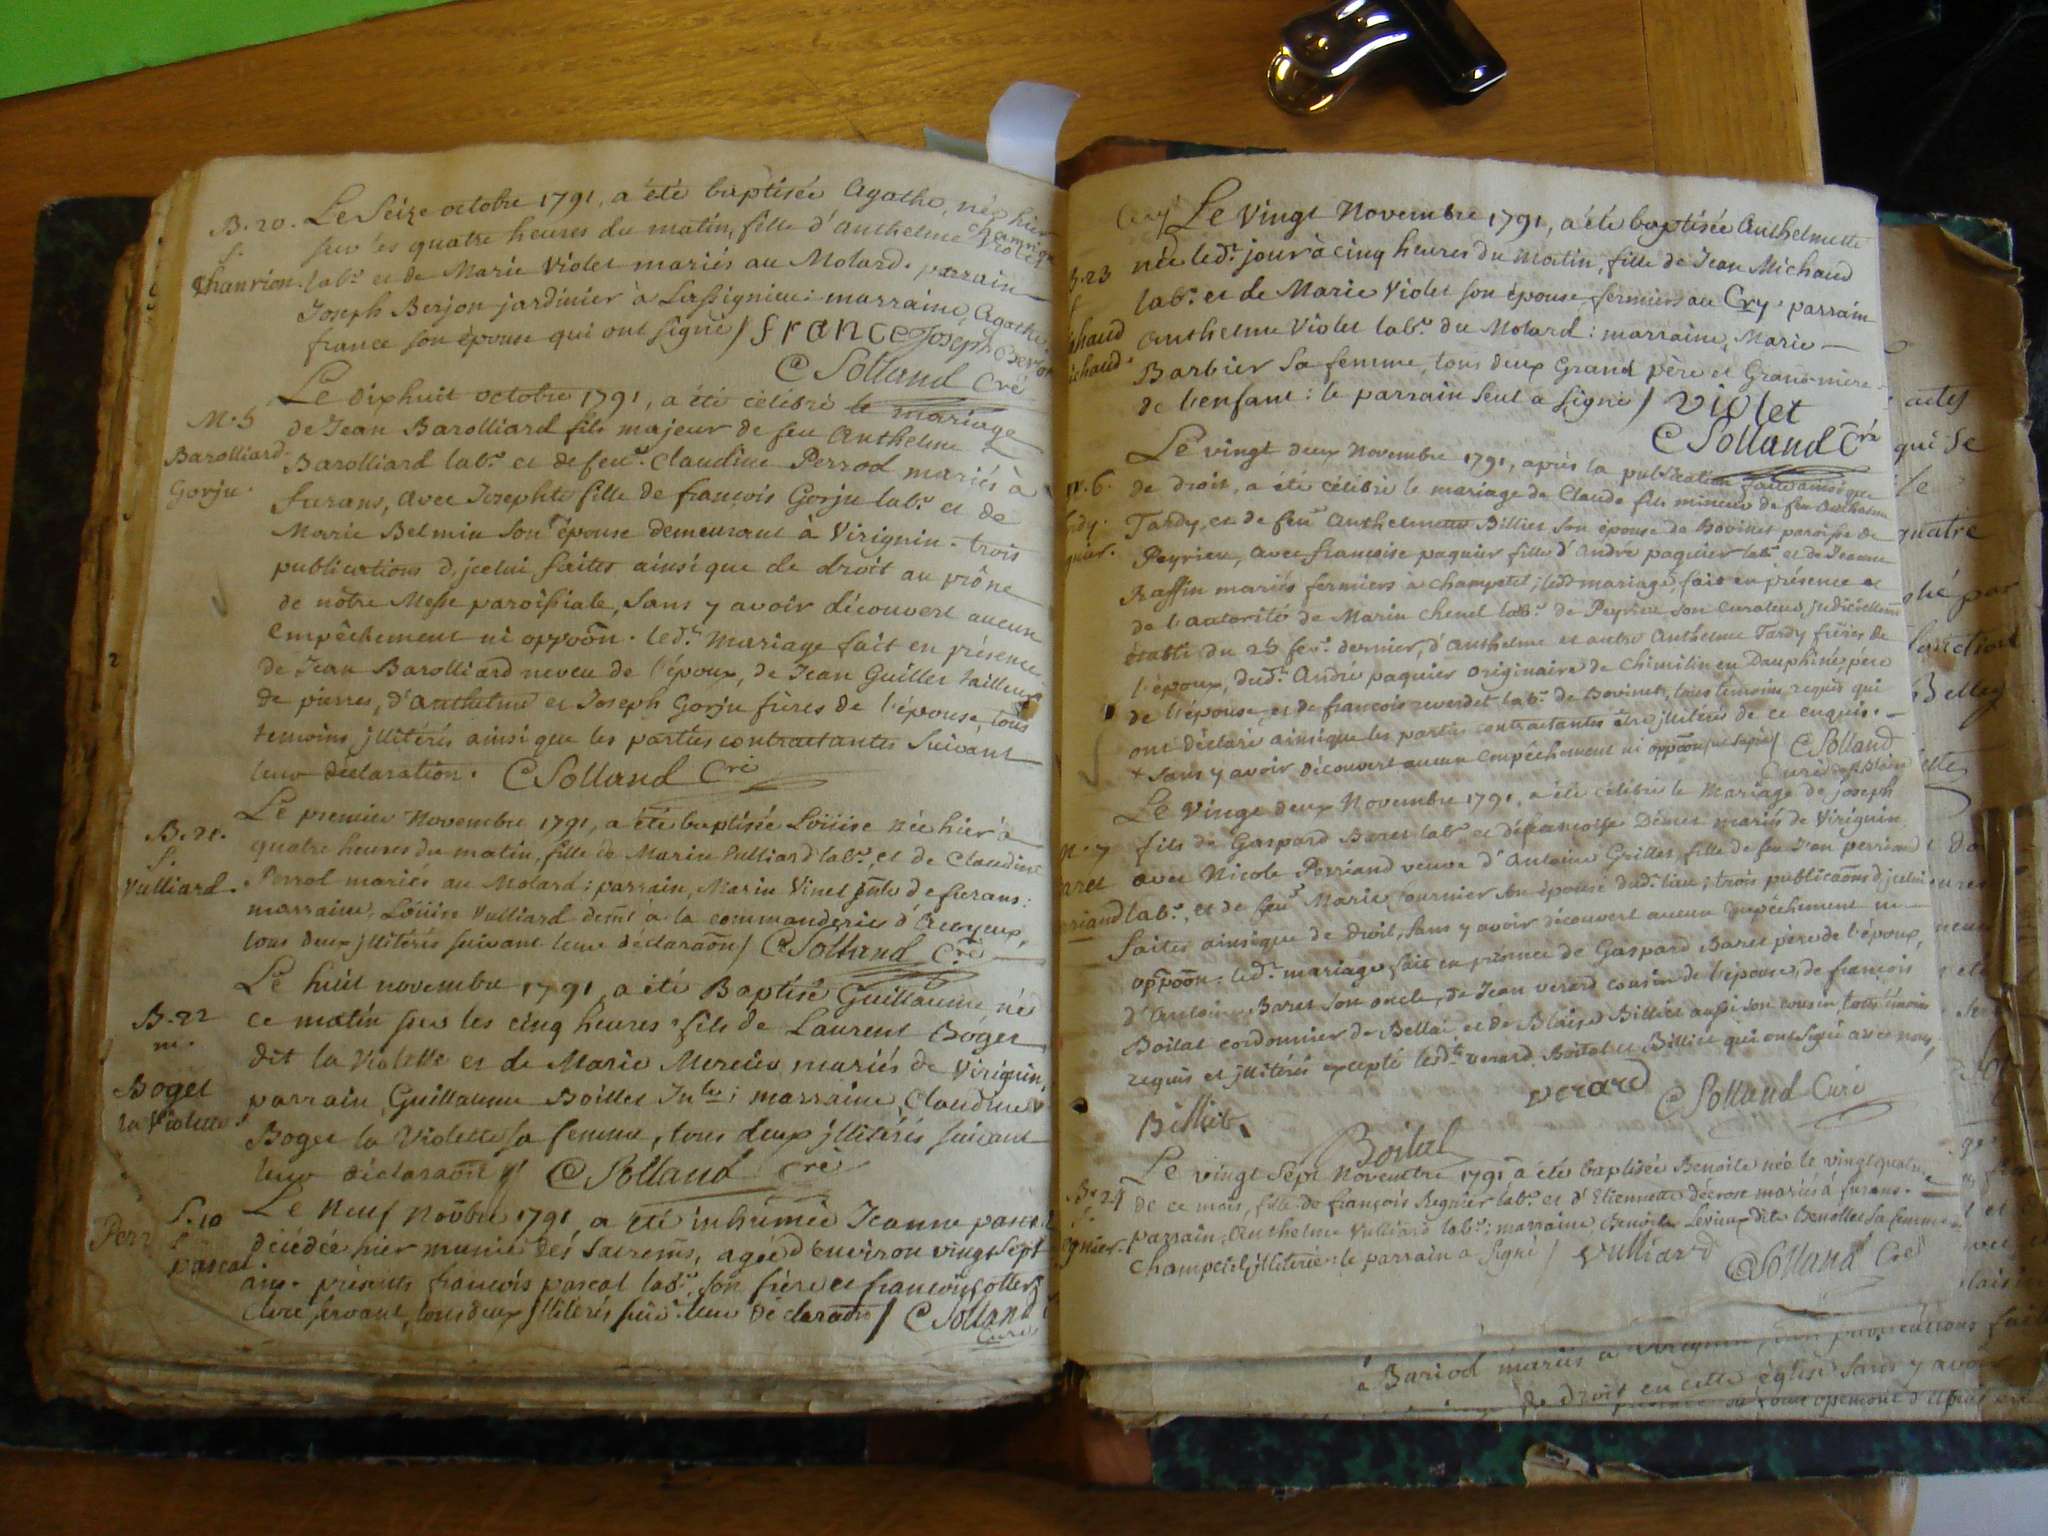 B. 20.
f.
Chanrion.
Le Seize octobre 1791, a été baptisée Agathe, née hier
sur les quatre heures du matin, fille d'Anthelme Chanrion
labr. et de Marie Violet mariés au Molard. parrain
Joseph Berjon jardinier à marraine, Agathe
france son épouse qui ont signé / france Joseph Berjon
C Solland Cré
M. 5
Barolliard
Gorju.
Le dixhuit octobre 1791, a été célébré le mariage
de Jean Barolliard fils majeur de feu Anthelme
Barolliard labr. et de feue. Claudine Perrod mariés à
furans, avec Josephte fille de françois Gorju labr. et de
Marie Belmin son épouse demeurant à Virignin. trois
publications d'jcelui faites ainsi que de droit au prône
de nôtre Messe paroissiale, sans y avoir découvert aucun
empêchement ni oppoōn. ledt. mariage fait en présence
de Jean Barolliard neveu de l'époux, de Jean Guillet tailleur
de pierres, d'Anthelme et Joseph Gorju frères de l'épouse, tous
témoins jllitérés ainsi que les parties contractantes suivant
leur déclaration. C Solland Cré
B. 21.
f.
Vulliard.
Le premier Novembre 1791, a été baptisée Loüise née hier à
quatre heures du matin, fille de Marin Vulliard labr. et de Claudine
Perrod mariés au Molard; parrain, Marin Vinet de furans:
marraine, Loüise Vulliard demt. à la commanderie d'
tous deux jllitérés suivant leur déclaraōn / C Solland Cré
B. 22
m.
Boget
la Violette
Le huit novembre 1791, a été Baptisé Guillaume, né
ce matin sur les cinq heures fils de Laurent Boget
dit la Violette et de Marie Mercier mariés de Virignin,
parrain, Guillaume Boillet; marraine, Claudine
Boget la Violette sa femme, tous deux jllitérés suivant
leur déclaraōn / C Solland Cré
S. 10
f.
pascal
Le Neuf Novbre 1791, a été inhumée Jeanne pascal
décédée hier munie des Sacremts, agée d'environ vingt sept
ans. présents françois pascal labr. son frère et françois
clerc servant, tous deux jllitérés suivt. leur déclaraōn / C Solland
Curé
B. 23
f
Michaud
Le vingt Novembre 1791, a été baptisée Anthelmette
née ledt. jour à cinq heures du matin, fille de Jean Michaud
labr. et de Marie Violet son épouse fermiers au Cry. parrain
Anthelme Violet labr. du Molard: marraine, Marie
Barbier sa femme, tous deux Grand père et Grand-mère
de l'enfant: le parrain seul a signé / Violet
C Solland Cré
M. 6.
Le vingt deux Novembre 1791, après la publication faite ainsi que
de droit, a été célébré le mariage de Claude fils mineur de feu Anthelme
Tardy, et de feue Anthelmette Billiet son épouse de Bovinet paroisse de
Peyrieu, avec françoise paquier fille d'André paquier labr. et de Jeanne
Raffin mariés fermiers à champetel; ledt. mariage fait en présence et
de l'autorité de Marin Chenel labr. de Peyrieu son curateur judiciellemt
établi du 25 dernier, d'Anthelme et autre Anthelme Tardy frères de
l'époux, dudt. André paquier originaire de Chimilin en Dauphiné, père
de l'épouse, et de françois reverdet labr. de Bovinet, tous témoins requis qui
ont déclaré ainsi que les parties contractantes être jllitérés de ce enquis.
+ sans y avoir découvert aucun empêchement ni oppoōn / C Solland
Curé
M. 7
Le vingt deux Novembre 1791, a été célébré le Mariage de joseph
fils de Gaspard Baret labr. et de françoise mariés de Virignin
avec Nicole Perriand veuve d'Antoine Grillet, fille de feu Jean perriand
labr., et de feue Marie fournier son épouse dudt. lieu; trois publicaōns d'jcelui
faites ainsi que de droit, sans y avoir découvert aucun empêchement ni
oppoōn: ledt. mariage fait en présence de Gaspard Baret père de l'époux,
d'Antoine Baret son oncle, de Jean verard cousin de l'épouse, de françois
Boital cordonnier de Bellai et de Blaise Billiet aussi son cousin, tous témoins
requis et jllitérés excepté lesdts verard Boital et Billiet qui ont signé avec nous
Billiet verard C Solland Curé
Boital
B. 24
f.
Le vingt Sept Novembre 1791 a été baptisée Benoite née le vingt quatre
de ce mois, fille de françois Regnier labr. et d'Etiennette Décrose mariés à furans.
parrain, Anthelme Vulliard labr.; marraine Benoite dite Benollet sa femme
Champetel jllitérée: le parrain a signé / Vulliard C Solland Cré
actes
qui se
le
quatre
Belley
Bariod mariés à Virignin, publications faites
de droit en cette église sans y avoir